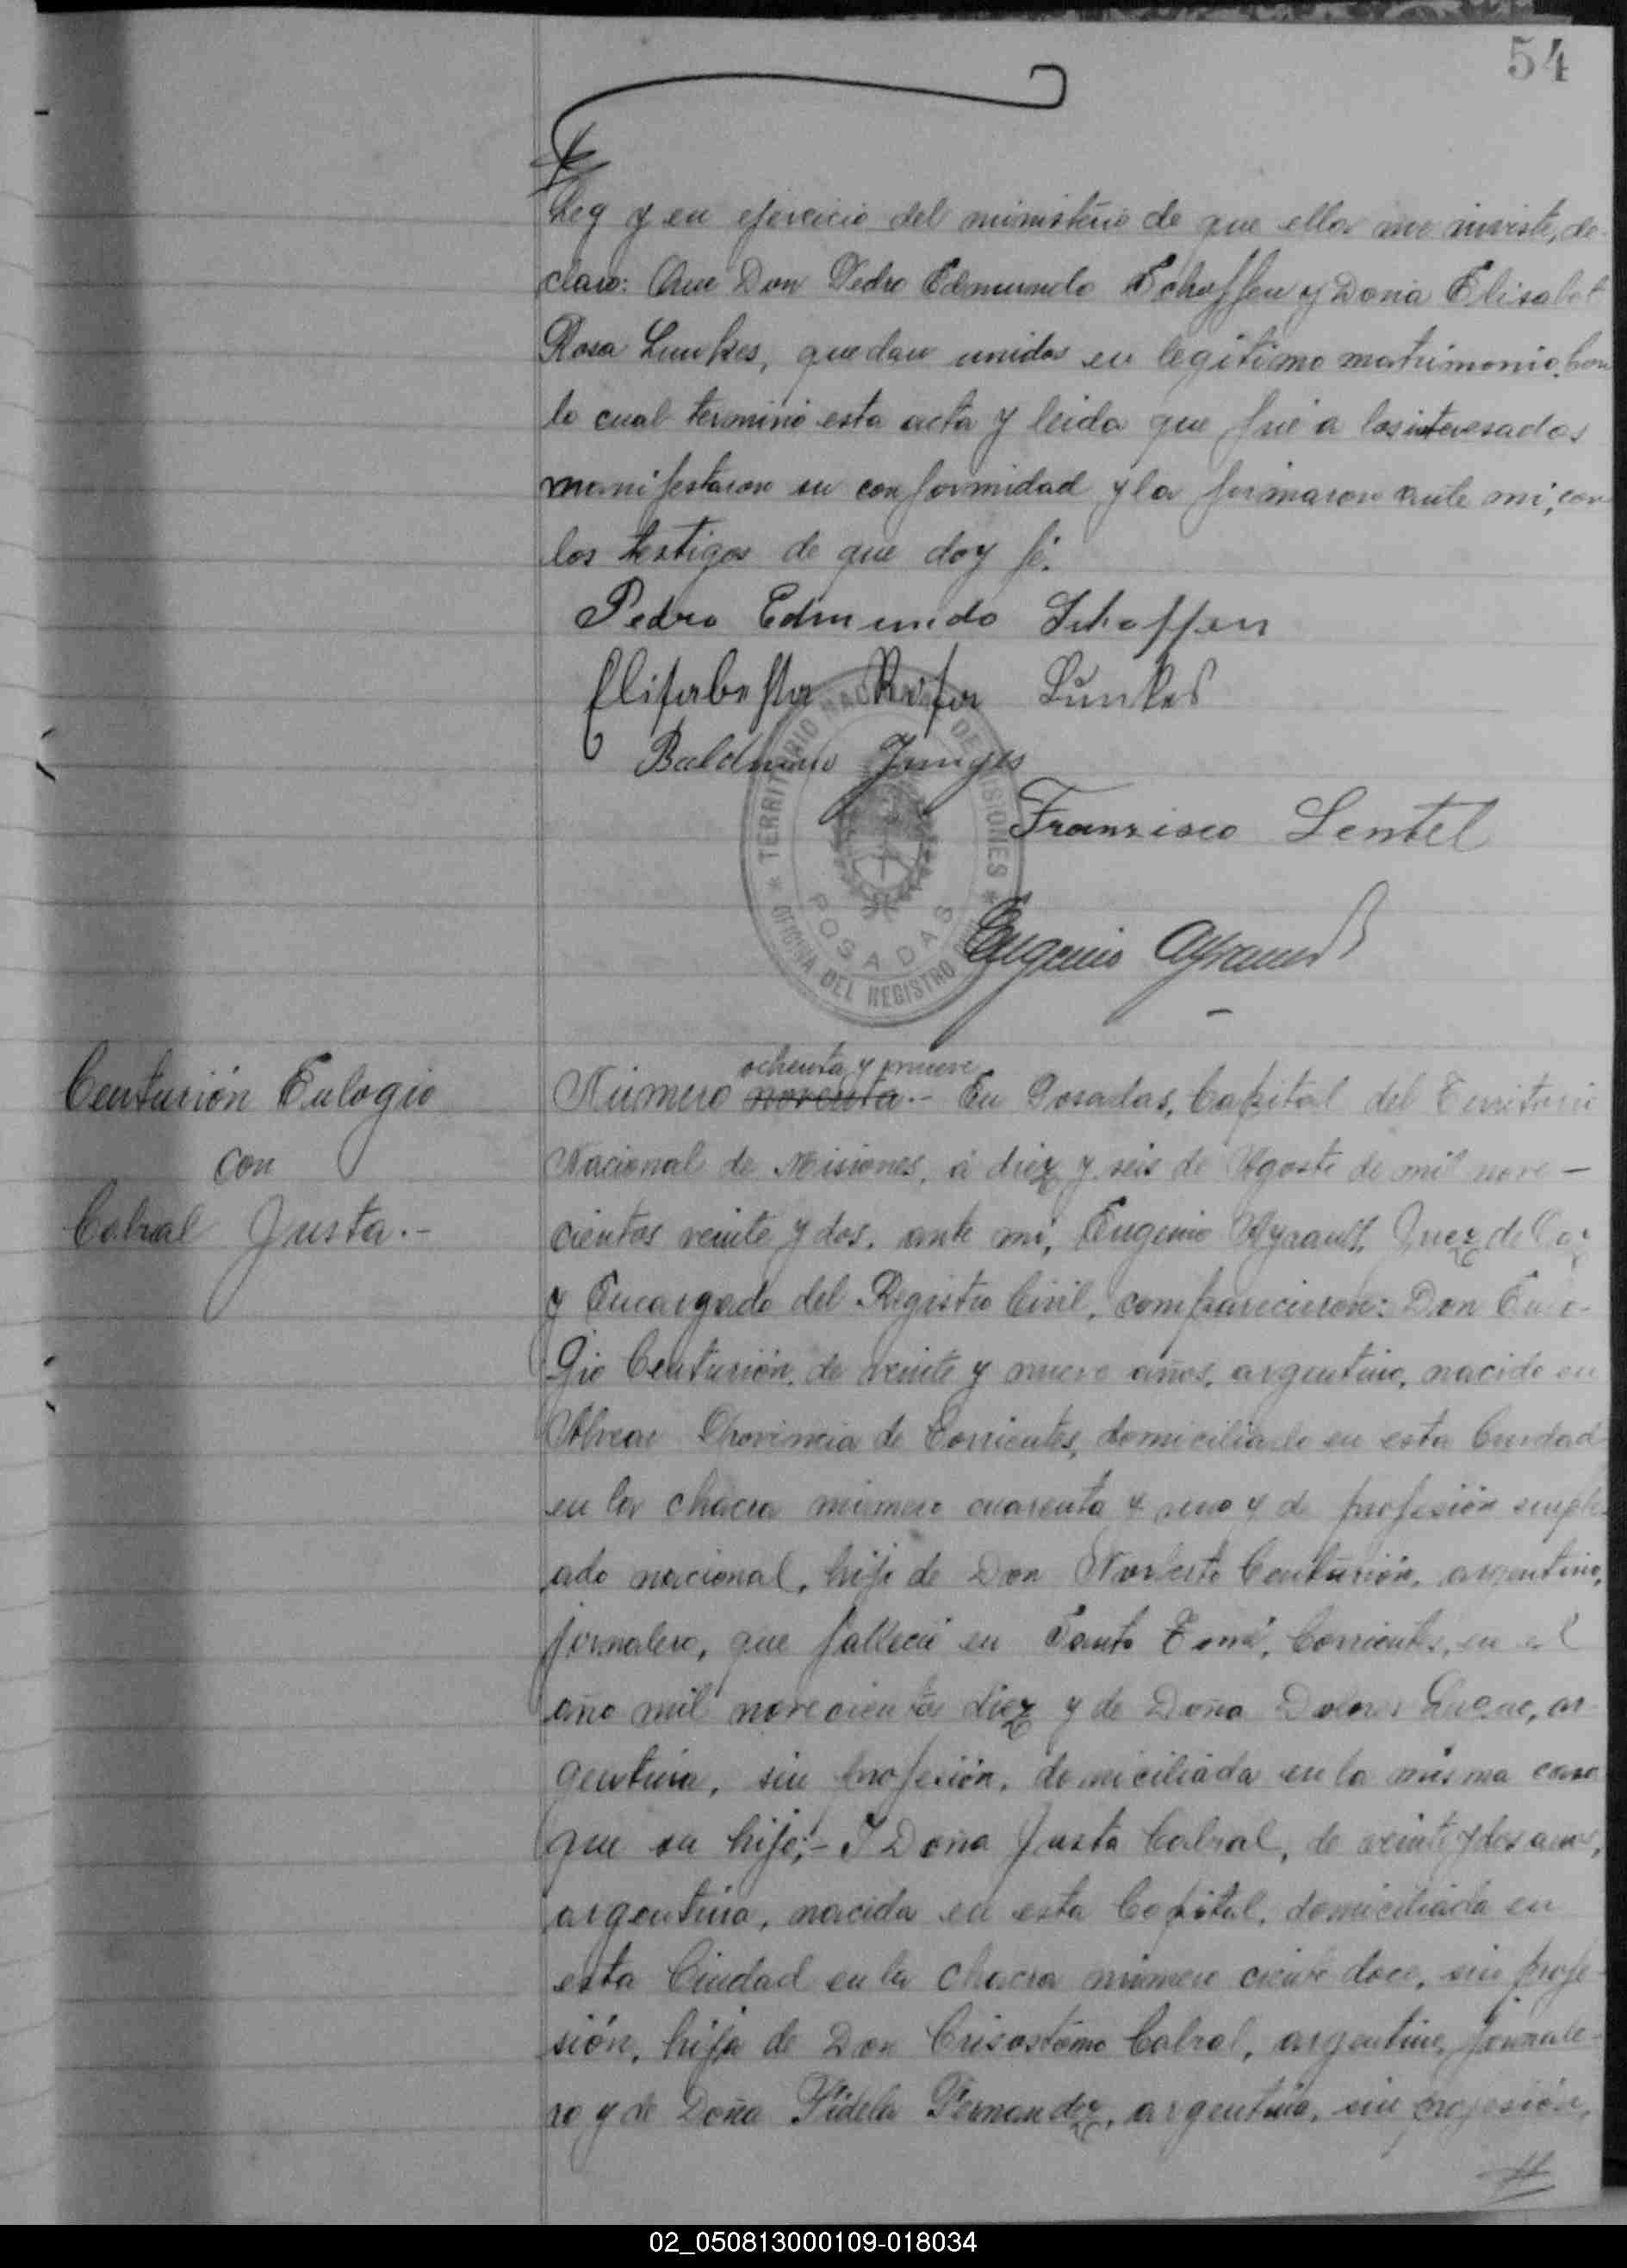 54
Ley y en ejercicio del ministerio de que ella me inviste, de-
claro: Que Don Pedro Edmundo Schoffen y Doña Elisabet
Rosa Lunkes, quedan unidos en legitimo matrimonio. Con
lo cual terminó esta acta y leida que fué a los interesados
manifestaron su conformidad y la firmaron ante mi, con
los testigos de que doy fé.
Pedro Edmundo Schoffen
Elisabetha Rosa Lunkes
Balduino Junges
Franzisco Lentel
Eugenio Ayrault
TERRITORIO NACIONAL DE MISIONES
OFICINA DEL REGISTRO
POSADAS
Centurión Eulogio
con
Cabral Justa.-
ochenta y nueve
Número noventa.- En Posadas, Capital del Territorio
Nacional de Misiones, á diez y seis de Agosto de mil nove-
cientos veinte y dos, ante mi, Eugenio Ayrault, Juez de Paz
y Encargado del Registro Civil, comparecieron: Don Eulo-
gio Centurión, de veinte y nueve años, argentino, nacido en
Alvear Provincia de Corrientes, domiciliado en esta Ciudad
en la chacra número cuarenta y uno y de profesión emple-
ado nacional, hijo de Don Norberto Centurión, argentino,
jornalero, que falleció en Santo Tomé, Corrientes, en el
año mil novecientos diez y de Doña Dolores Luque, ar-
gentina, sin profesión, domiciliada en la misma casa
que su hijo;- Y Doña Justa Cabral, de veinte y dos años,
argentina, nacida en esta Capital, domiciliada en
esta Ciudad en la chacra número ciento doce, sin profe-
sión, hija de Don Crisostómo Cabral, argentino, jornale-
ro y de Doña Fidela Fernandez, argentina, sin profesión,
02_050813000109-018034